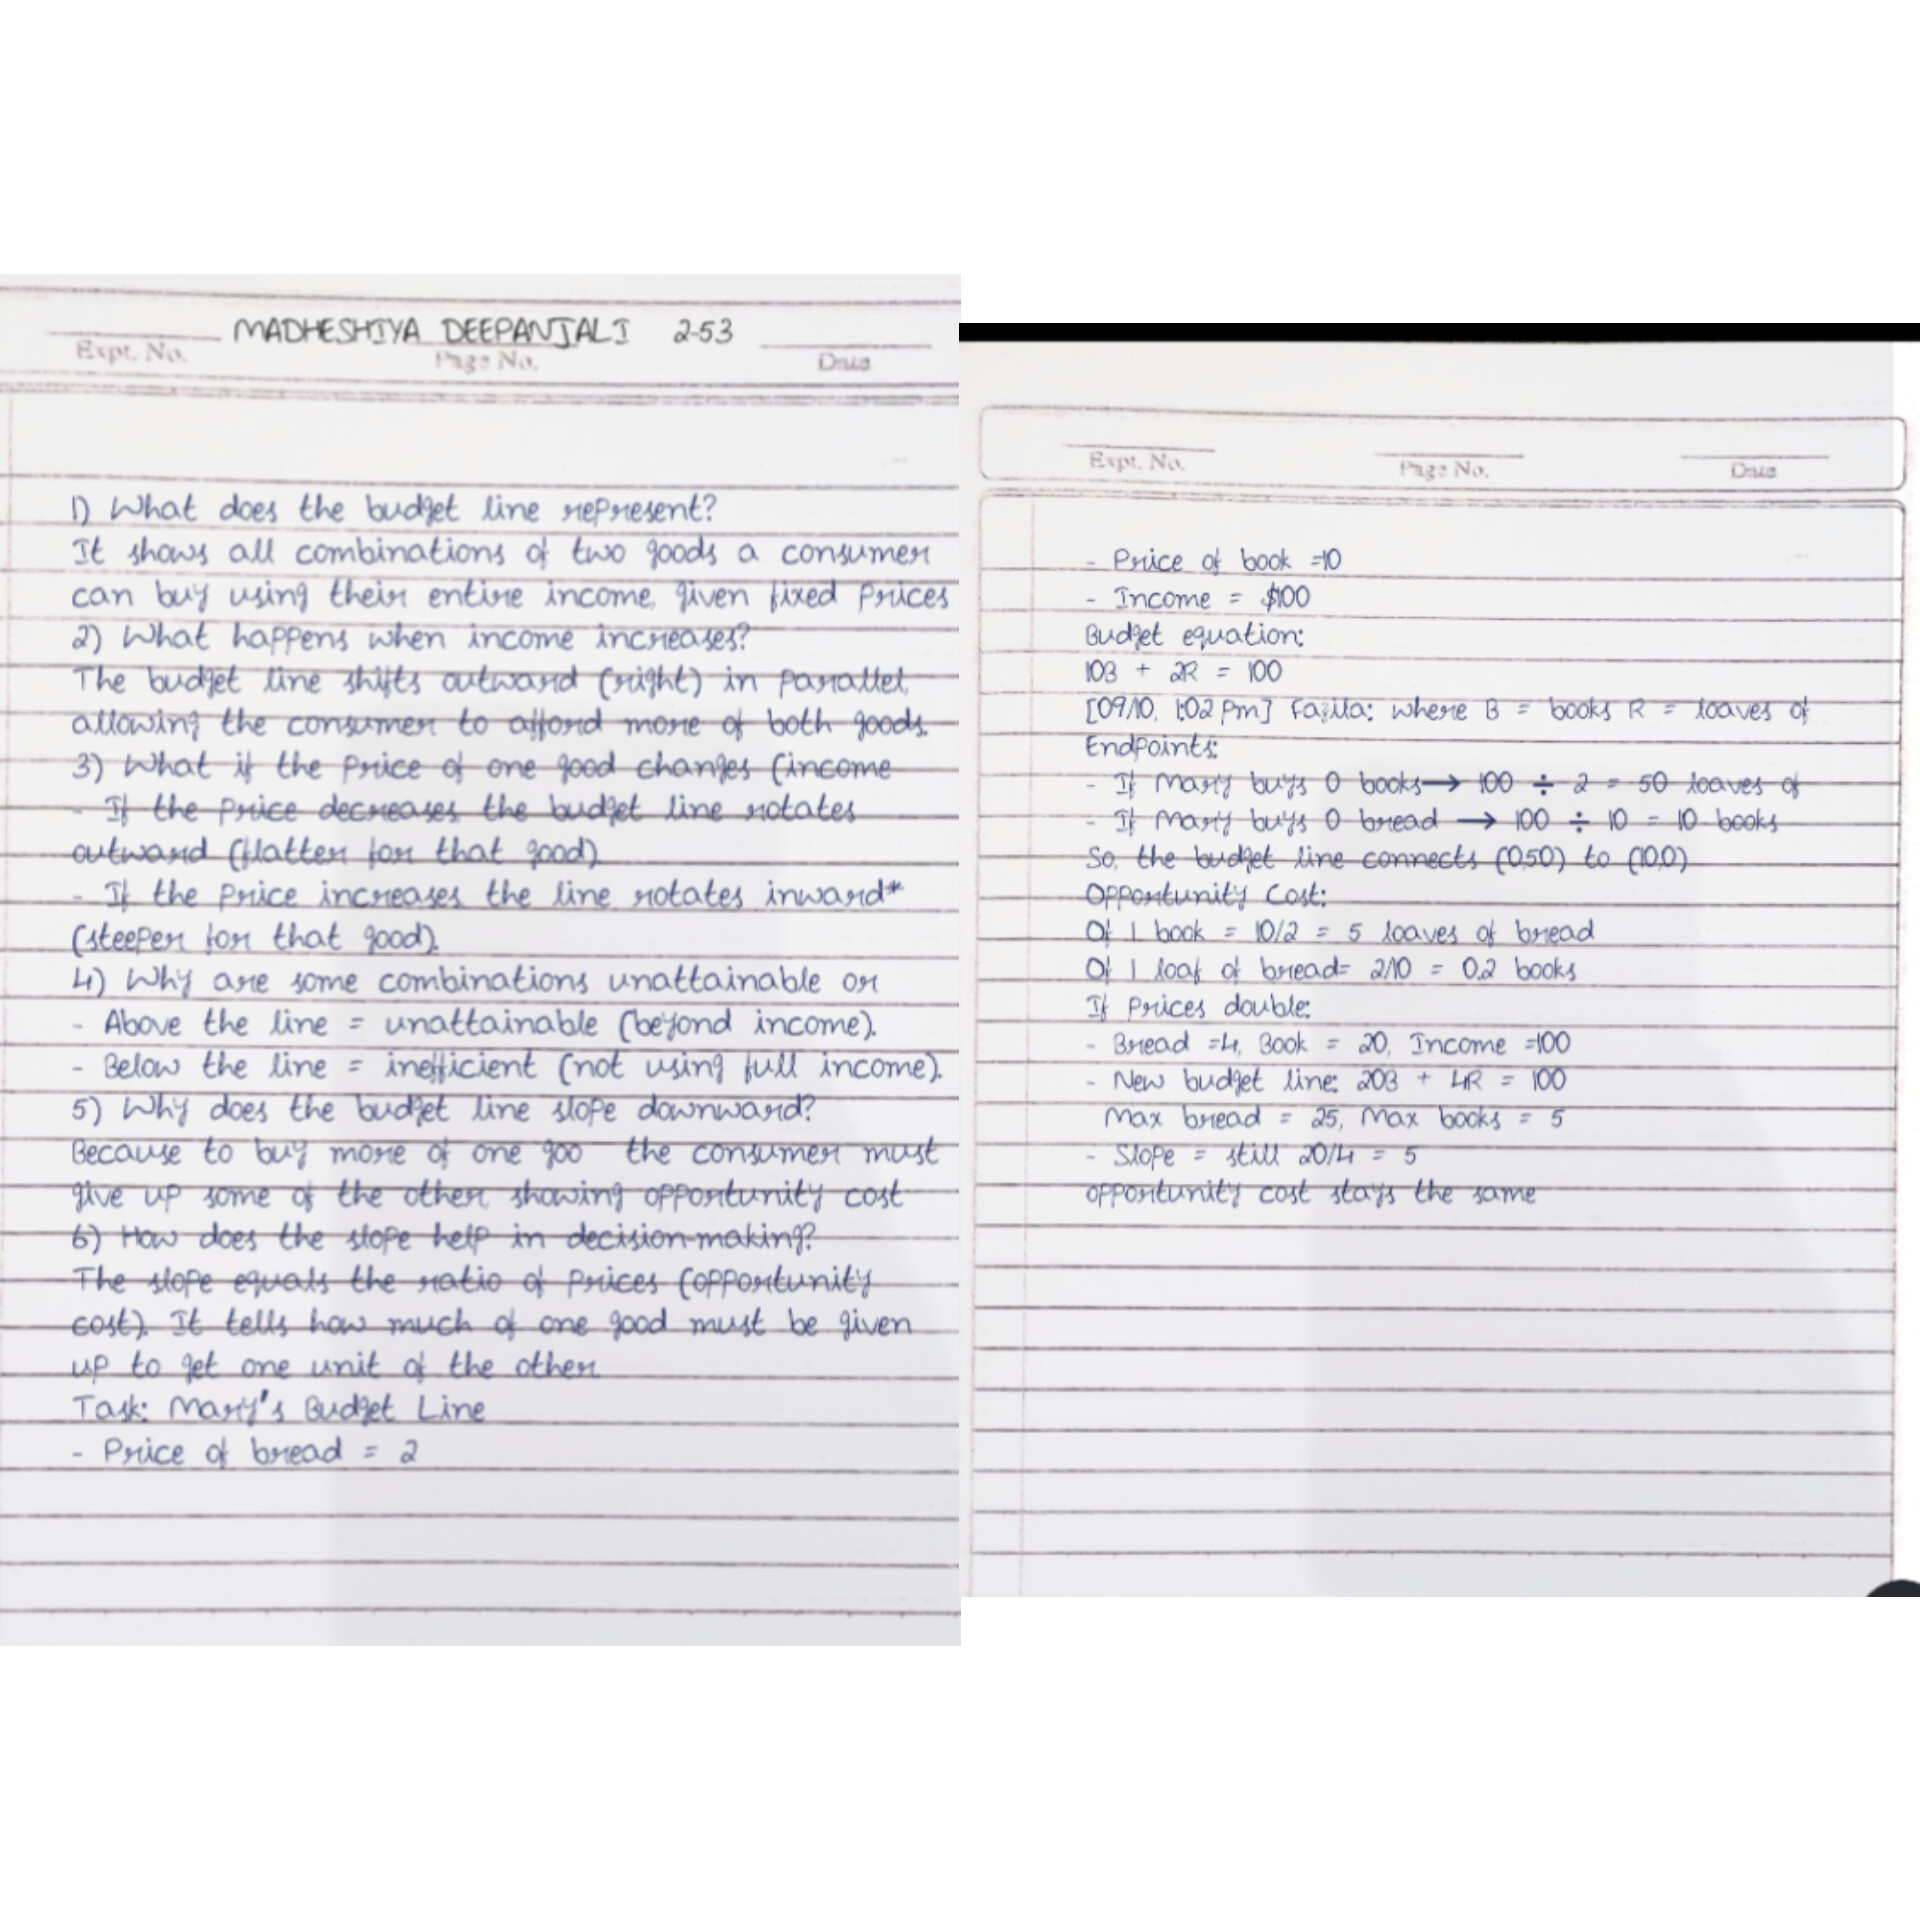 MADHESHIYA DEEPANJALI 2-53
Expt. No.
Page No.
Date
1) What does the budget line represent?
It shows all combinations of two goods a consumer
can buy using their entire income, given fixed prices
2) What happens when income increases?
The budget line shifts outward (right) in parallel,
allowing the consumer to afford more of both goods.
3) What if the price of one good changes (income
- If the price decreases, the budget line rotates
outward (flatter for that good).
- If the price increases, the line rotates inward*
(steeper for that good).
4) Why are some combinations unattainable or
- Above the line = unattainable (beyond income).
- Below the line = inefficient (not using full income).
5) Why does the budget line slope downward?
Because to buy more of one goo the consumer must
give up some of the other, showing opportunity cost
6) How does the slope help in decision-making?
The slope equals the ratio of prices (opportunity
cost). It tells how much of one good must be given
up to get one unit of the other.
Task: Mary's Budget Line
- Price of bread = 2
Expt. No.
Page No.
Date
- Price of book =10
- Income = $100
Budget equation:
10B + 2R = 100
[09/10, 1:02 pm] Fajila: where B = books R = loaves of
Endpoints:
- If Mary buys 0 books→ 100 ÷ 2 = 50 loaves of
- If Mary buys 0 bread → 100 ÷ 10 = 10 books
So, the budget line connects (0,50) to (10,0)
Opportunity Cost:
Of 1 book = 10/2 = 5 loaves of bread
Of 1 loaf of bread= 2/10 = 0.2 books
If prices double:
- Bread =4, Book = 20, Income =100
- New budget line: 20B + 4R = 100
Max bread = 25, Max books = 5
- Slope = still 20/4 = 5
opportunity cost stays the same